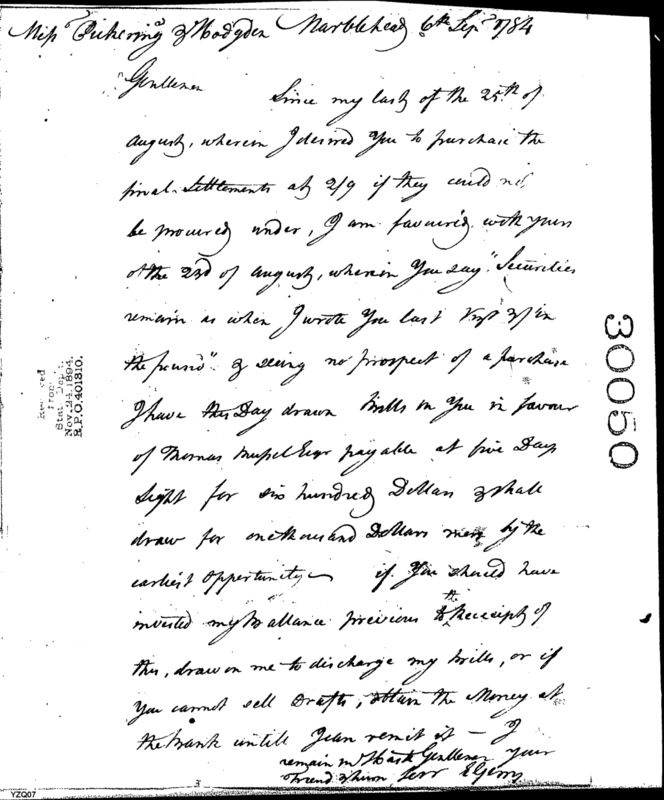 Mess Pickering & Hodgdon Marblehead 6th Sepr 1784
Gentlemen Since my last of the 25th of
August, wherein I desired You to purchase the
final Settlements at 2/9 if they could not
be procured under, I am favoured with yours
of the 23d of August, wherein You say "Securities
remain as when I wrote You last 3/ in
the pound" & seeing no prospect of a purchase
I have this Day drawn Bills on You in favour
of Thomas Russel Esqr payable at five Days
Sight for six hundred Dollars & shall
draw for one thousand Dollars more by the
earliest Opportunity— if You should have
invested my Ballance previous to the Receipt of
this, draw on me to discharge my bills, or if
You cannot sell Drafts, obtain the Money at
the bank untill I can remit it — I
remain in haste Gentlemen your
Friend & hum Serv E Gerry
Received
from
Stat. Dept.
Nov. 24, 1894.
R.P.O. 401810.
30050
YZQ07